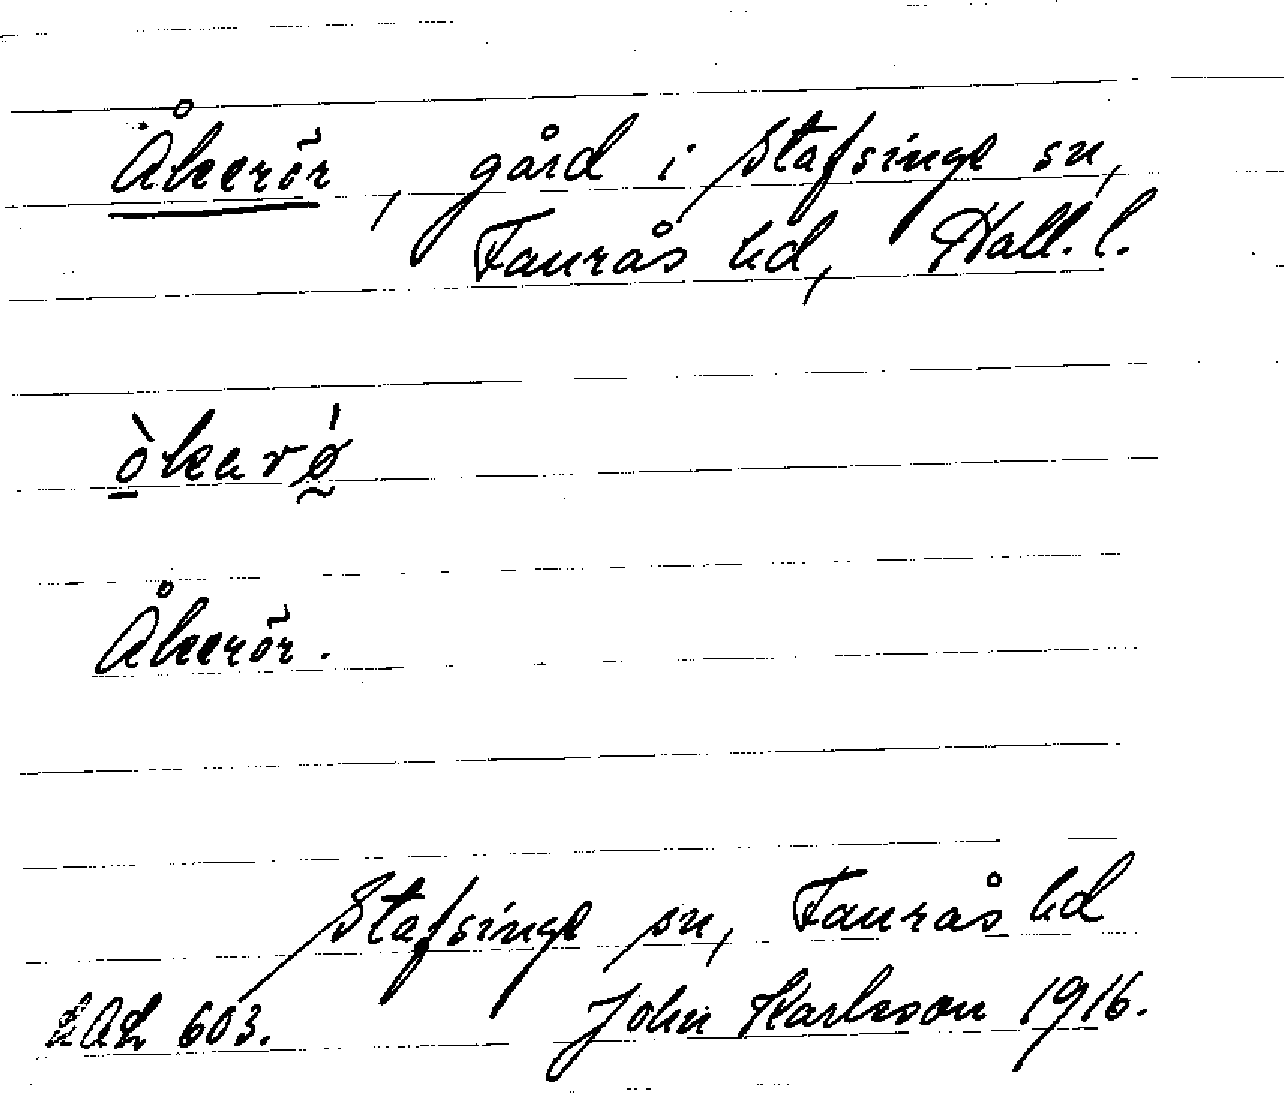 Åkerör, gård i Stafsinge sn,
Faurås hd, Hall. l.
òkarǿ
Åkerör.
Stafsinge sn, Faurås hd
LAL 603. John Karlsson 1916.